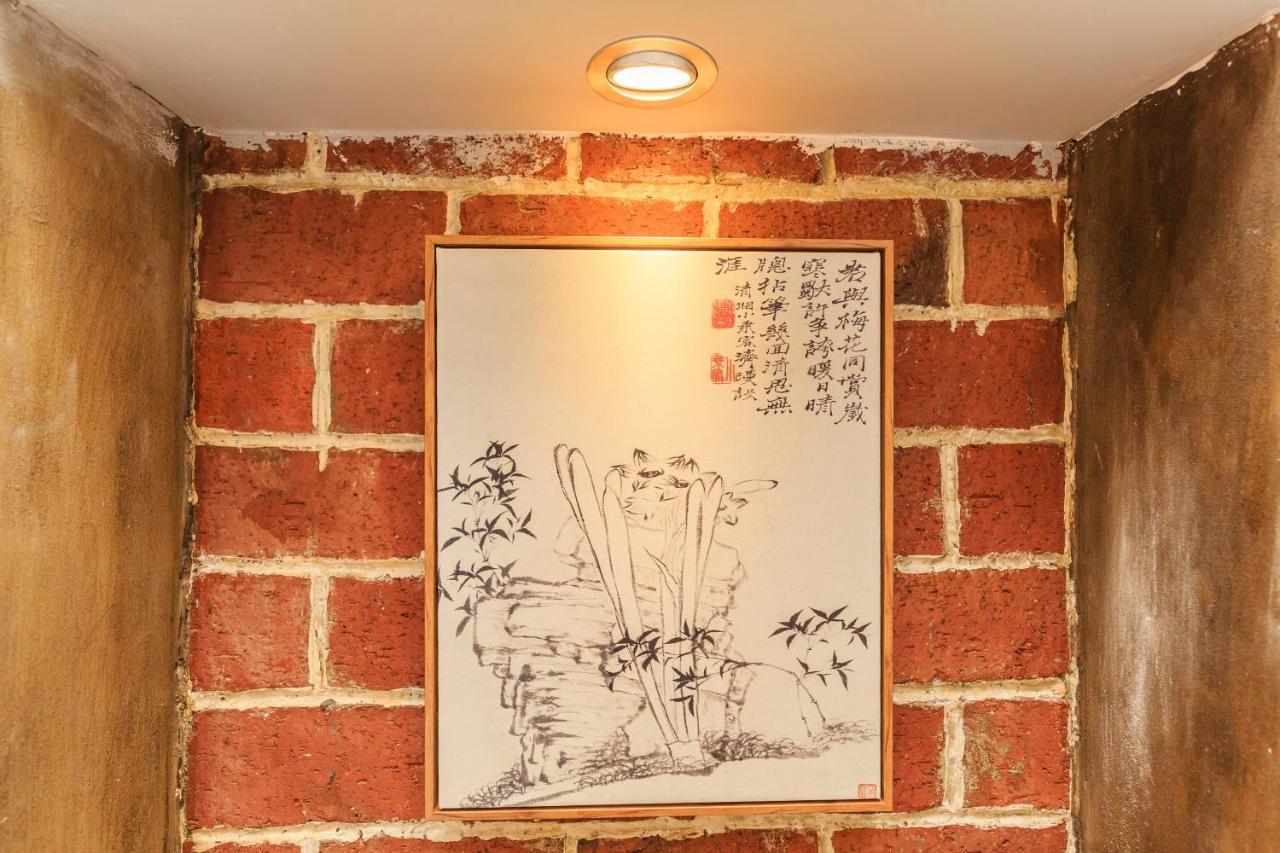 君與梅花同賞歲
寒默許爭誇暖日晴
牕拈筆幾囬清思無
涯
清湘小乘客濟漫設